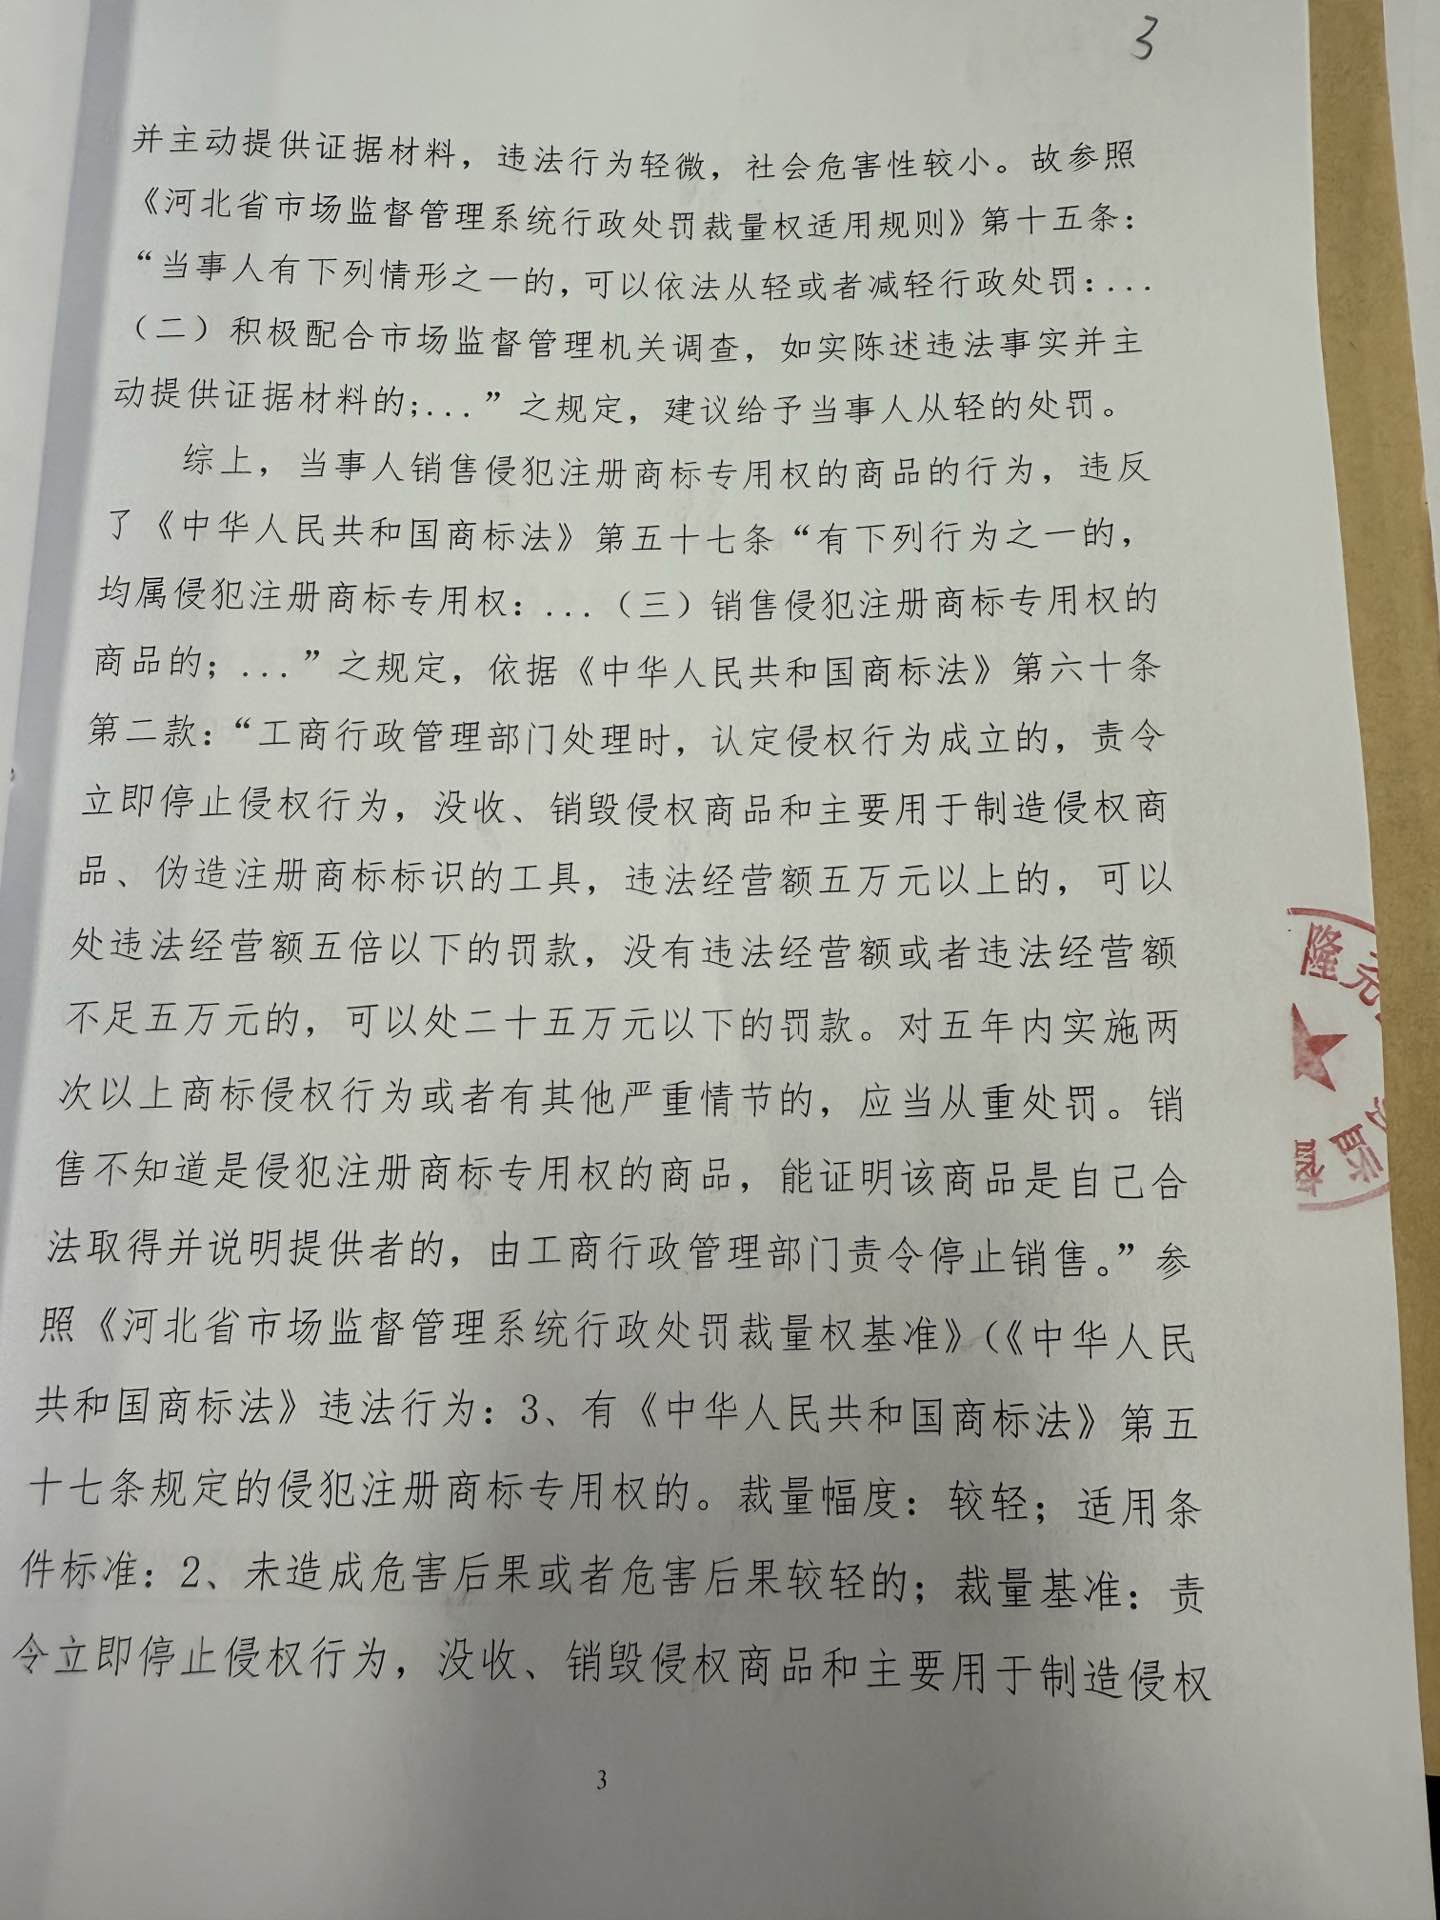 3
并主动提供证据材料，违法行为轻微，社会危害性较小。故参照
《河北省市场监督管理系统行政处罚裁量权适用规则》第十五条：
“当事人有下列情形之一的，可以依法从轻或者减轻行政处罚：...
（二）积极配合市场监督管理机关调查，如实陈述违法事实并主
动提供证据材料的;...”之规定，建议给予当事人从轻的处罚。
综上，当事人销售侵犯注册商标专用权的商品的行为，违反
了《中华人民共和国商标法》第五十七条“有下列行为之一的，
均属侵犯注册商标专用权：...（三）销售侵犯注册商标专用权的
商品的；...”之规定，依据《中华人民共和国商标法》第六十条
第二款：“工商行政管理部门处理时，认定侵权行为成立的，责令
立即停止侵权行为，没收、销毁侵权商品和主要用于制造侵权商
品、伪造注册商标标识的工具，违法经营额五万元以上的，可以
处违法经营额五倍以下的罚款，没有违法经营额或者违法经营额
不足五万元的，可以处二十五万元以下的罚款。对五年内实施两
次以上商标侵权行为或者有其他严重情节的，应当从重处罚。销
售不知道是侵犯注册商标专用权的商品，能证明该商品是自己合
法取得并说明提供者的，由工商行政管理部门责令停止销售。”参
照《河北省市场监督管理系统行政处罚裁量权基准》（《中华人民
共和国商标法》违法行为：3、有《中华人民共和国商标法》第五
十七条规定的侵犯注册商标专用权的。裁量幅度：较轻；适用条
件标准：2、未造成危害后果或者危害后果较轻的；裁量基准：责
令立即停止侵权行为，没收、销毁侵权商品和主要用于制造侵权
3
隆元